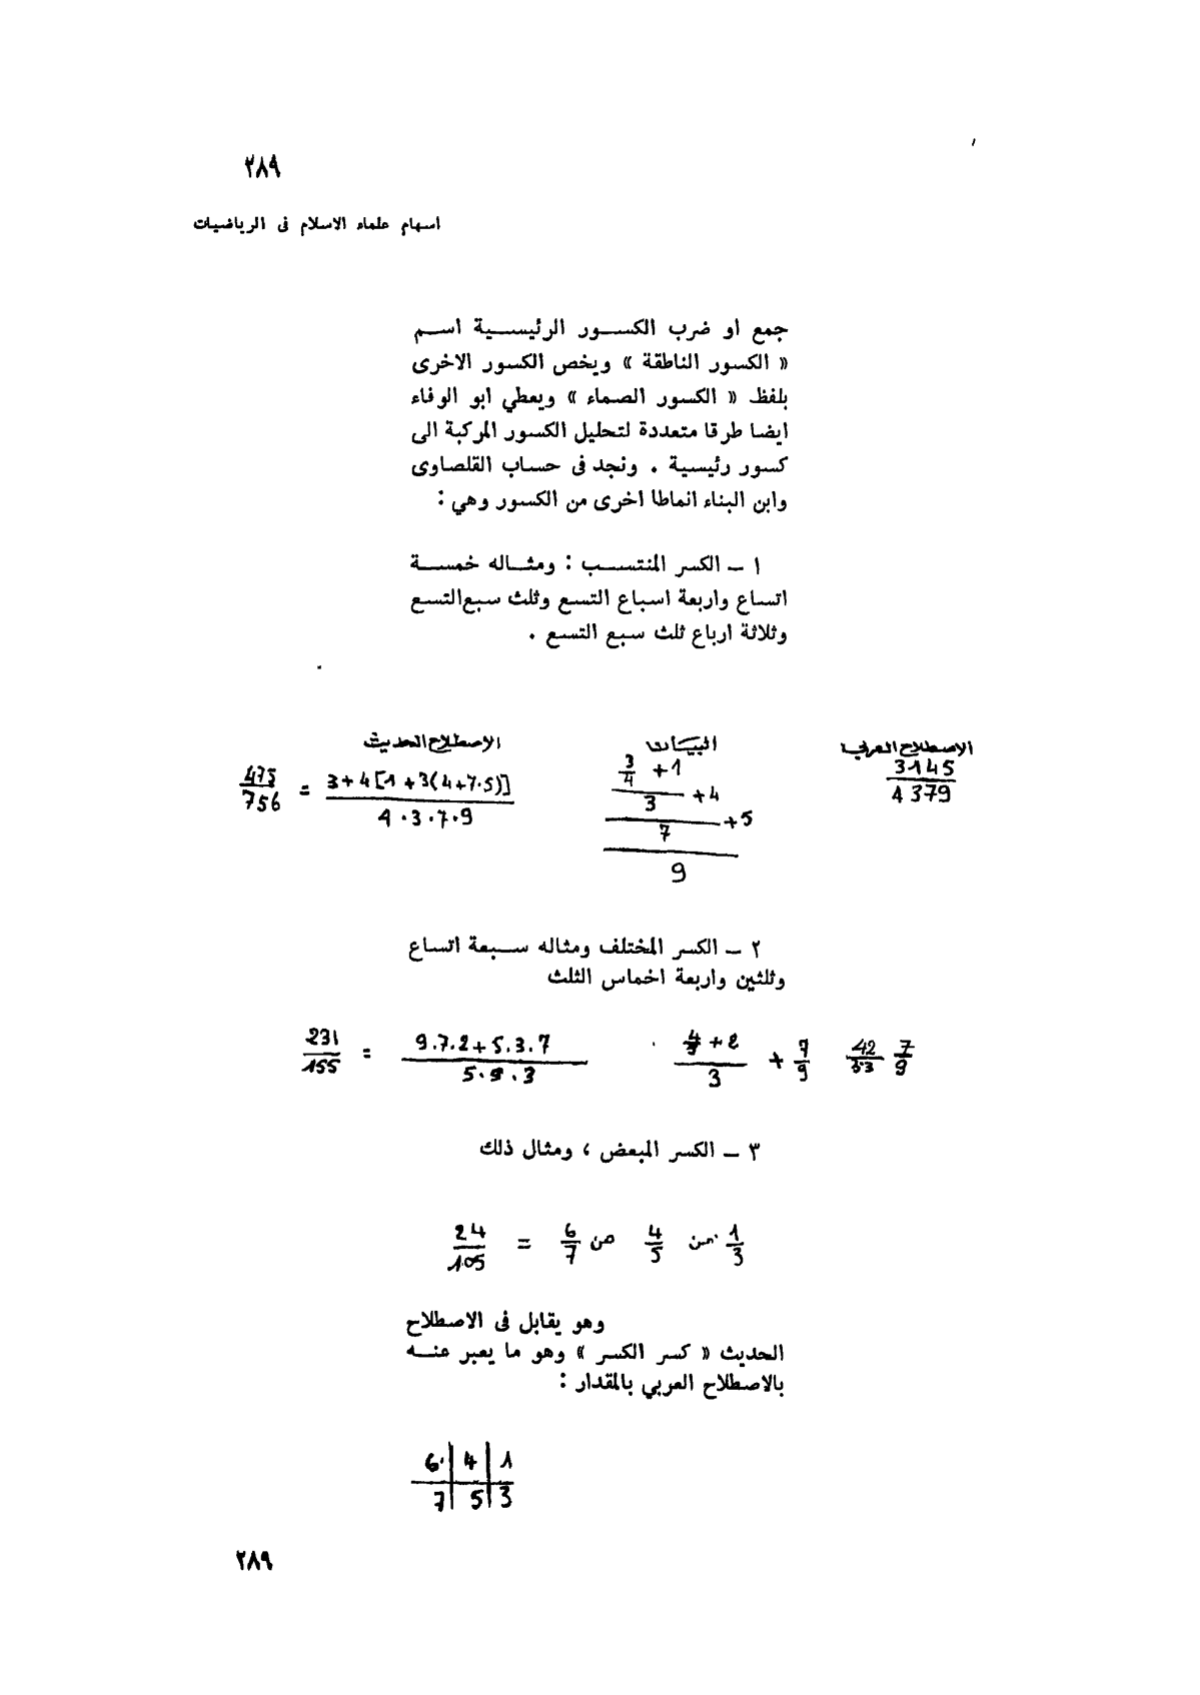 ٢٨٩
اسهام علماء الاسلام فى الرياضيات
جمع او ضرب الكسور الرئيسية اسم
« الكسور الناطقة » ويخص الكسور الاخرى
بلفظ « الكسور الصماء » ويعطي ابو الوفاء
ايضا طرقا متعددة لتحليل الكسور المركبة الى
كسور رئيسية . ونجد فى حساب القلصاوى
وابن البناء انماطا اخرى من الكسور وهي :
١ – الكسر المنتسب : ومثاله خمسة
اتساع واربعة اسباع التسع وثلث سبع التسع
وثلاثة ارباع ثلث سبع التسع .
الاصطلاح العربي البيات الاصطلاح الحديث
3145
4379
3/4 +1
3 +4
7 +5
9
475/756 = 3+4[1+3(4+7.5)]
4.3.7.9
٢ – الكسر المختلف ومثاله سبعة اتساع
وثلثين واربعة اخماس الثلث
231/155 = 9.7.2+5.3.7 / 5.9.3
4/5 +2 / 3 + 7/9
42/53 7/9
٣ – الكسر المبعض ، ومثال ذلك
1/3 من 4/5 من 6/7 = 24/105
وهو يقابل فى الاصطلاح
الحديث « كسر الكسر » وهو ما يعبر عنه
بالاصطلاح العربي بالمقدار :
6 | 4 | 1
7 | 5 | 3
٢٨٩